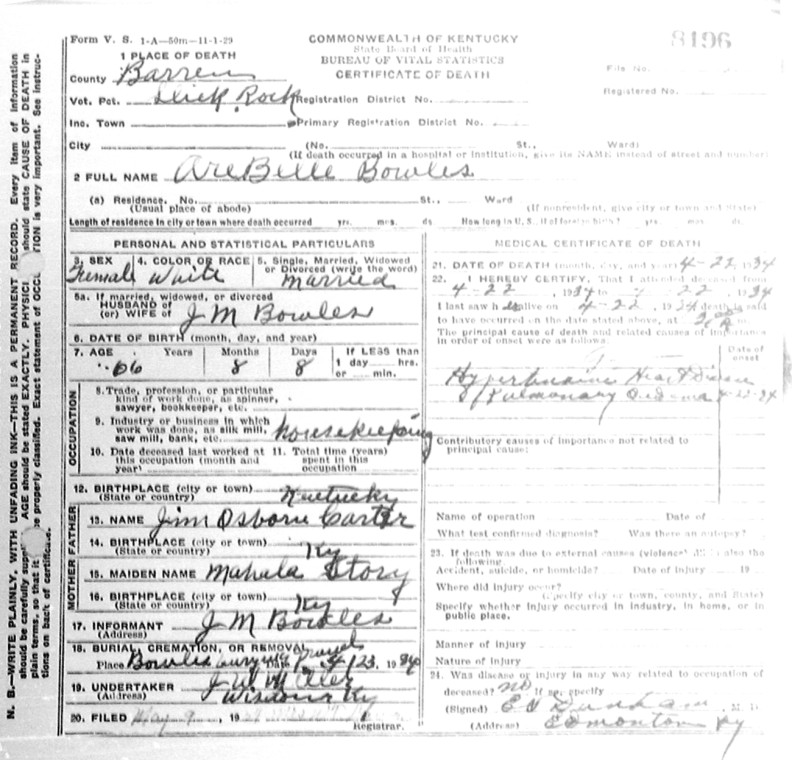 Form V. S. 1-A—50m-11-1-29
COMMONWEALTH OF KENTUCKY
State Board of Health
BUREAU OF VITAL STATISTICS
CERTIFICATE OF DEATH
8196
File No.
Registered No.
1 PLACE OF DEATH
County Barren
Vot. Pct. Slick Rock Registration District No.
Inc. Town Primary Registration District No.
City (No. St., Ward)
(If death occurred in a hospital or institution, give its NAME instead of street and number)
2 FULL NAME AreBelle Bowles
(a) Residence. No. St., Ward
(Usual place of abode) (If nonresident, give city or town and State)
Length of residence in city or town where death occurred yrs. mos. ds How long in U. S., if of foreign birth? yrs. mos. ds.
PERSONAL AND STATISTICAL PARTICULARS
3. SEX 4. COLOR OR RACE 5. Single, Married, Widowed
or Divorced (write the word)
Female White Married
5a. If married, widowed, or divorced
HUSBAND of
(or) WIFE of J M Bowles
6. DATE OF BIRTH (month, day, and year)
7. AGE Years Months Days If LESS than
1 day hrs.
or min.
66 8 8
OCCUPATION
8. Trade, profession, or particular
kind of work done, as spinner,
sawyer, bookkeeper, etc.
9. Industry or business in which
work was done, as silk mill,
saw mill, bank, etc. housekeeping
10. Date deceased last worked at 11. Total time (years)
this occupation (month and spent in this
year) occupation
12. BIRTHPLACE (city or town)
(State or country) Kentucky
FATHER
13. NAME Jim Osborn Carter
14. BIRTHPLACE (city or town)
(State or country) Ky
MOTHER
15. MAIDEN NAME Mahala Story
16. BIRTHPLACE (city or town)
(State or country) Ky
17. INFORMANT J M Bowles
(Address)
18. BURIAL, CREMATION, OR REMOVAL
Place Bowles Date 4/23, 1934
19. UNDERTAKER J W
(Address) Ky
20. FILED May 9, 19
Registrar.
MEDICAL CERTIFICATE OF DEATH
21. DATE OF DEATH (month, day, and year) 4-22 1934
22. I HEREBY CERTIFY, That I attended deceased from
4-22, 1934 to 4-22, 1934
I last saw h alive on 4-22, 1934 death is said
to have occurred on the date stated above, at m.
The principal cause of death and related causes of importance
in order of onset were as follows:
Date of
onset
Heart Disease
Pulmonary Oedema 4-22-34
Contributory causes of importance not related to
principal cause:
Name of operation Date of
What test confirmed diagnosis? Was there an autopsy?
23. If death was due to external causes (violence) fill in also the
following
Accident, suicide, or homicide? Date of injury 19
Where did injury occur?
(Specify city or town, county, and State)
Specify whether injury occurred in industry, in home, or in
public place.
Manner of injury
Nature of injury
24. Was disease or injury in any way related to occupation of
deceased? no If so, specify
(Signed) M. D.
(Address) Edmonton Ky
N. B.—WRITE PLAINLY, WITH UNFADING INK—THIS IS A PERMANENT RECORD. Every item of information
should be carefully AGE should be stated EXACTLY. should state CAUSE OF DEATH in
plain terms, so that it properly classified. Exact statement of is very important. See
on back of certificate.